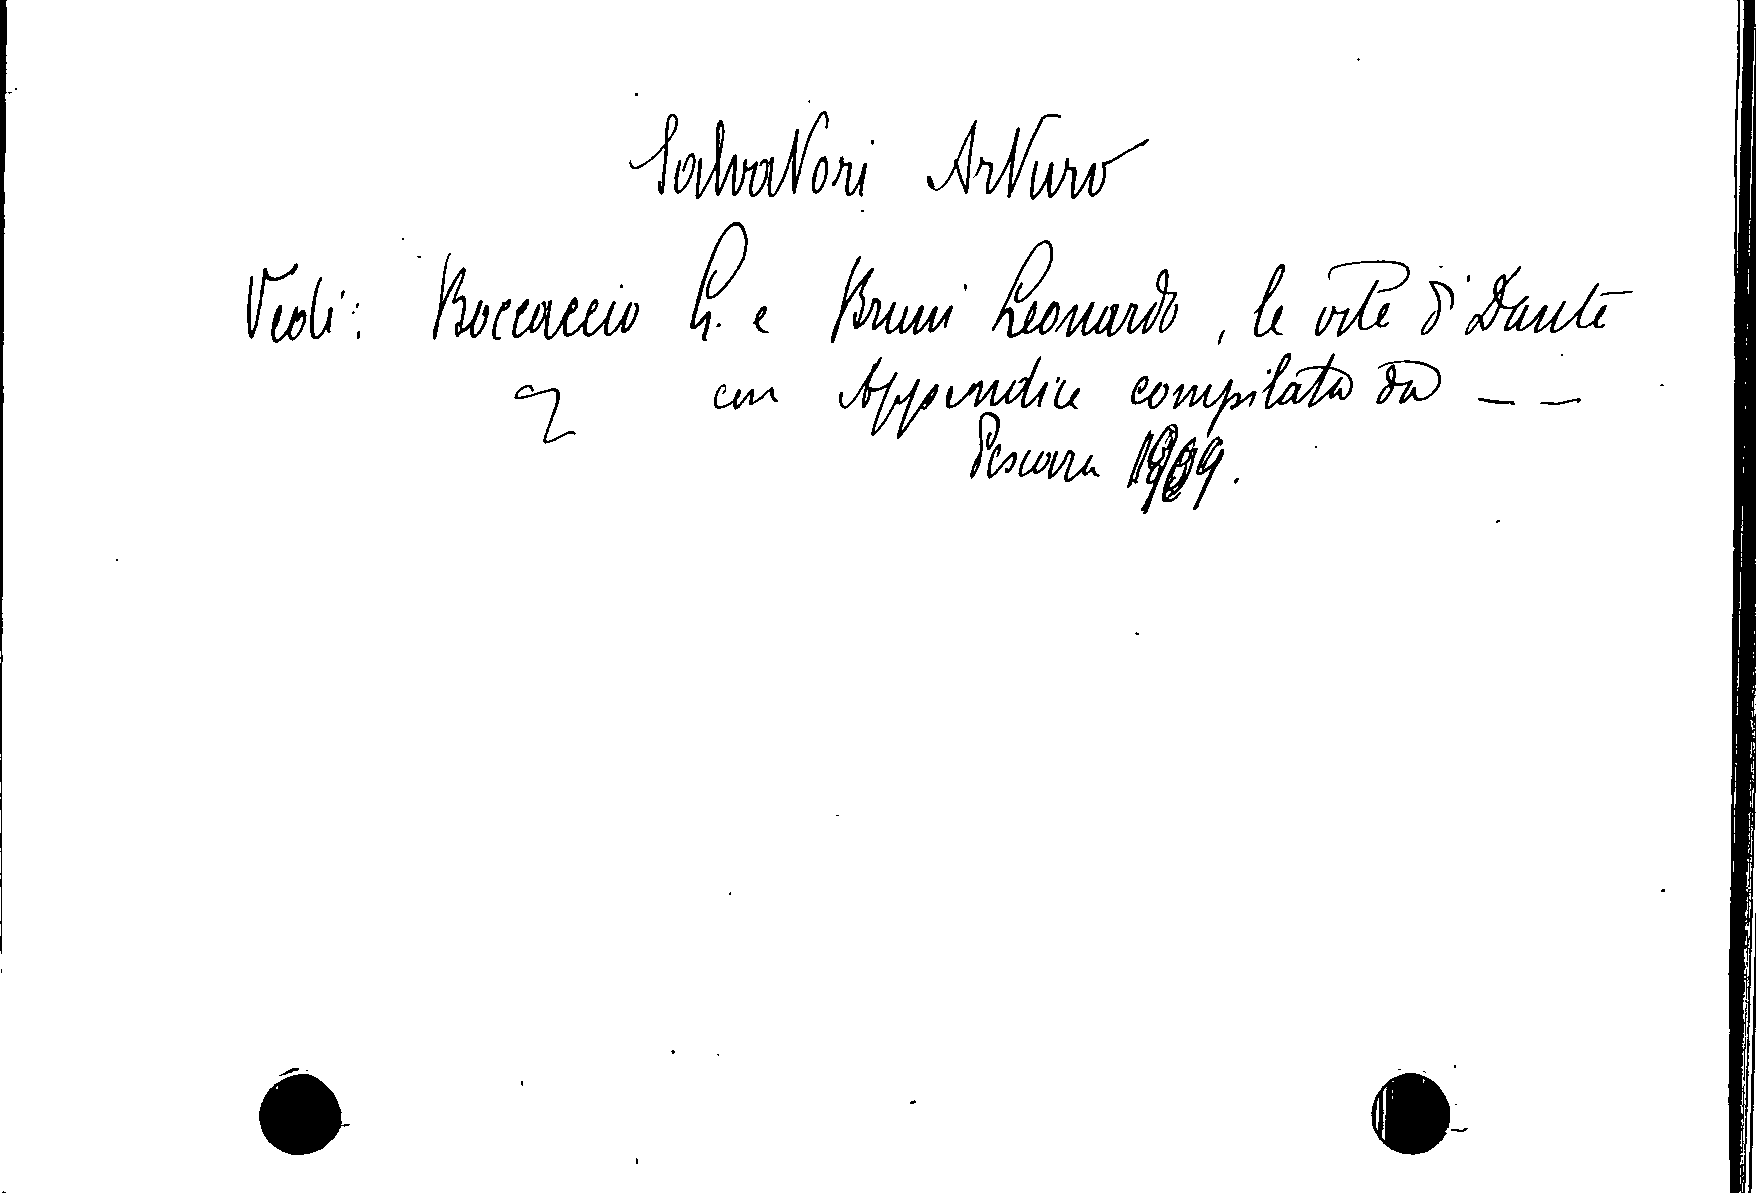 Salvatori Arturo
Vedi: Boccaccio G. e Bruni Leonardo, le vite di Dante
con Appendice compilata da — —
Pescara 1909.